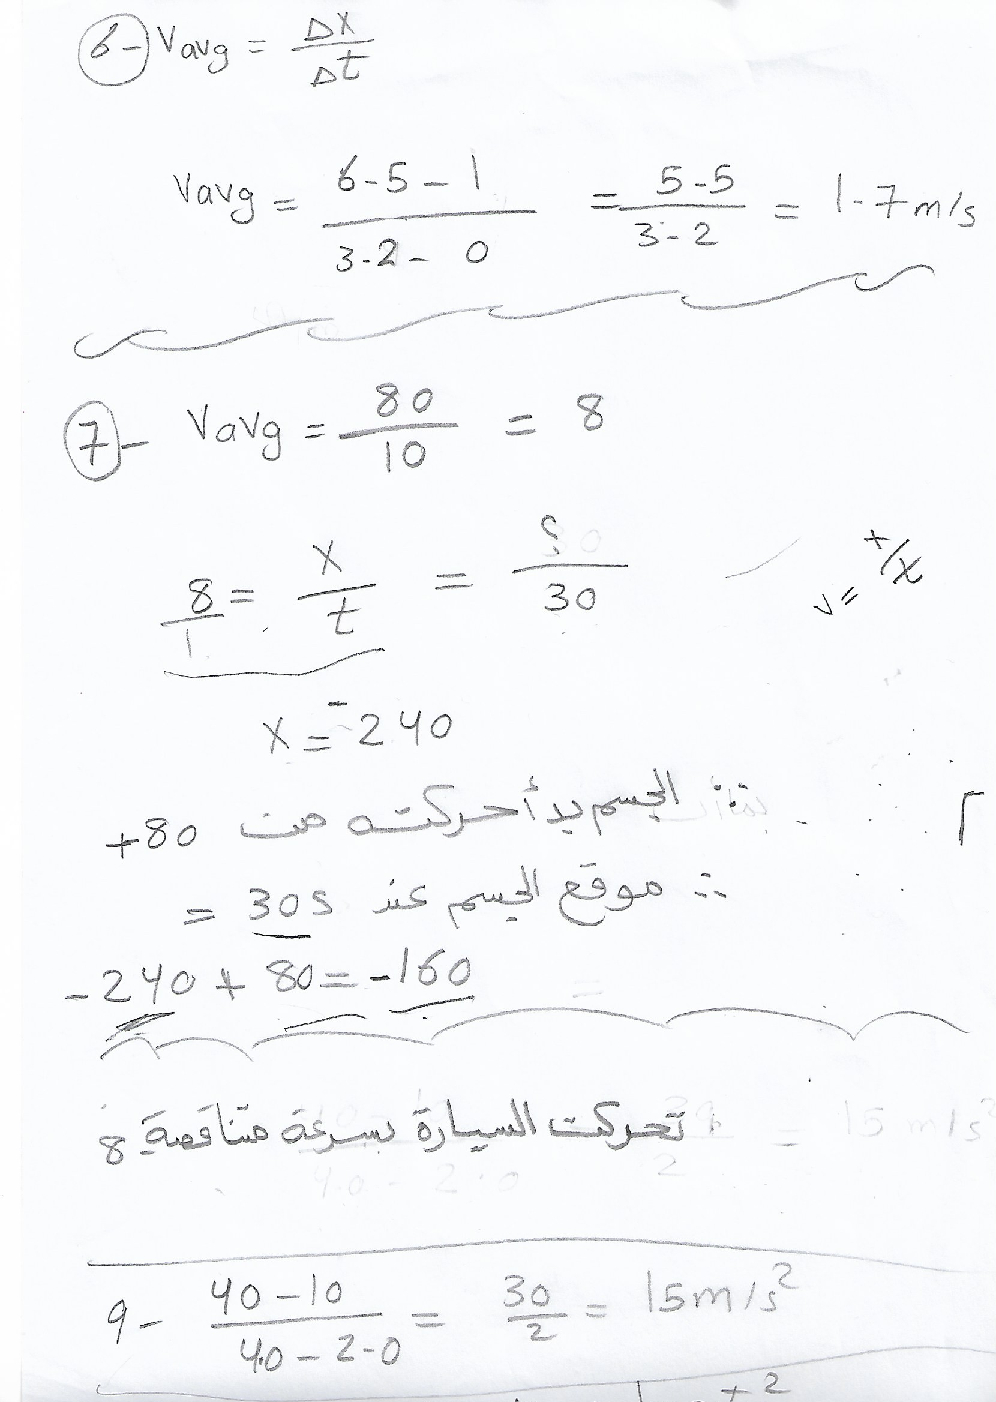 6- Vavg = Δx/Δt
Vavg = 6-5-1/3-2-0 = 5-5/3-2 = 1-7 m/s
7- Vavg = 80/10 = 8
8/1 = x/t = ؟/30
v = x/t
x = -240
الجسم بدأ حركته من +80
∴ موقع الجسم عند 30s =
-240 + 80 = -160
8 تحركت السيارة بسرعة متناقصة
9- 40-10/4.0-2.0 = 30/2 = 15m/s²